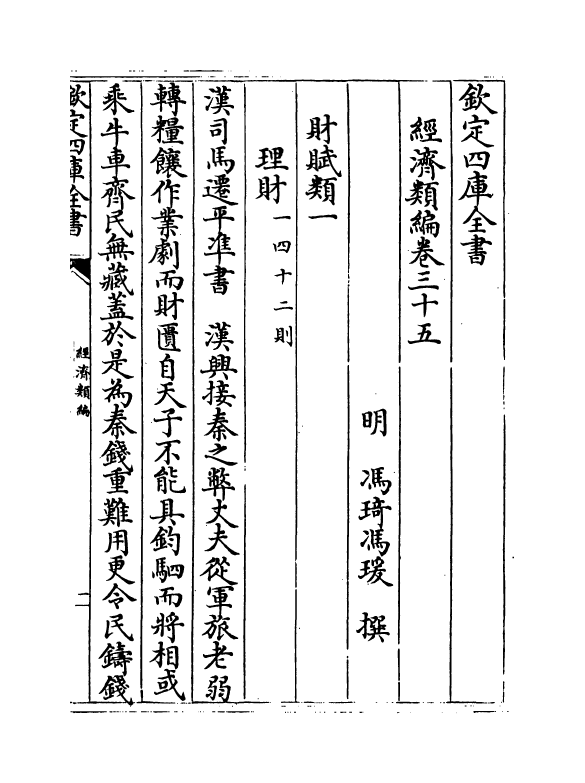 欽定四庫全書
經濟類編卷三十五
明 馮琦馮瑗 撰
財賦類一
理財一四十二則
漢司馬遷平準書 漢興接秦之弊丈夫從軍旅老弱
轉糧饟作業劇而財匱自天子不能具鈞駟而將相或
乘牛車齊民無藏蓋於是為秦錢重難用更令民鑄錢
欽定四庫全書
經濟類編